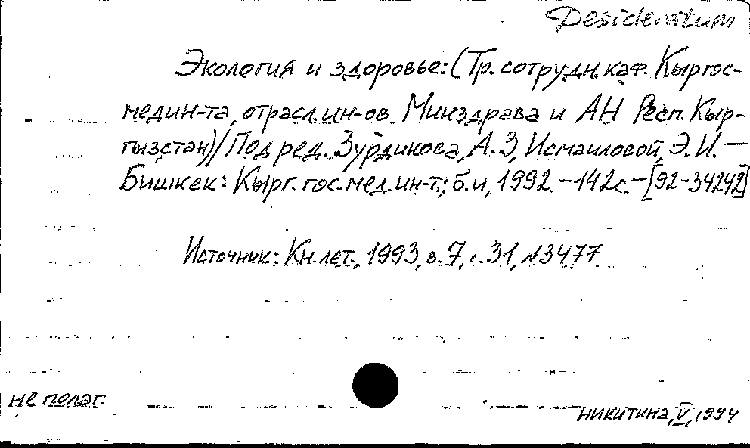 Desideratum
Экология и здоровье: (Тр. сотрудн. каф. Кыргос-
медин-та, отрасл. ин-ов. Минздрава и АН Респ. Кыр-
гызстан) / Под ред. Зурдинова, А. З, Исмаиловой, Э. И. —
Бишкек: Кырг. гос. мед. ин-т; б. и, 1992. - 142 с. - [92-34242]
Источник: Кн. лет., 1993, в. 7, с. 31, №3477
не полаг.
Никитина, V, 1994